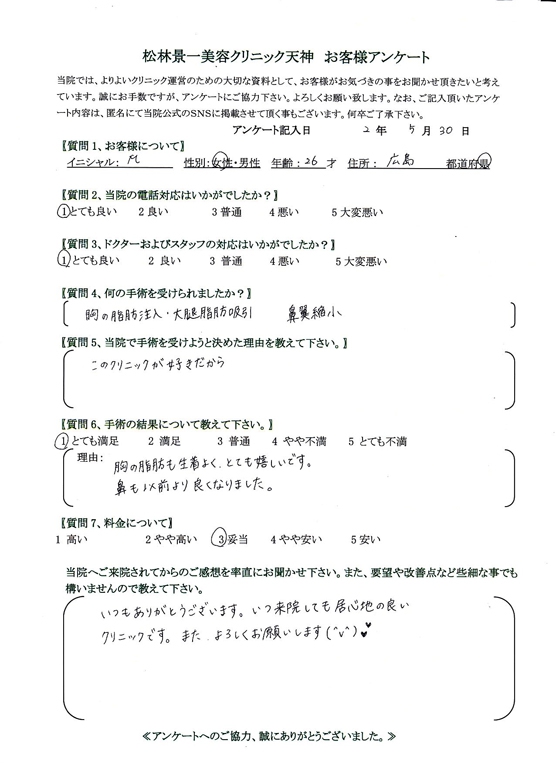 松林景一美容クリニック天神 お客様アンケート
当院では、よりよいクリニック運営のための大切な資料として、お客様がお気づきの事をお聞かせ頂きたいと考え
ています。誠にお手数ですが、アンケートにご協力下さい。よろしくお願い致します。なお、ご記入頂いたアンケ
ート内容は、匿名にて当院公式のSNSに掲載させて頂く事もございます。何卒ご了承下さい。
アンケート記入日 2 年 5 月 30 日
〖質問1、お客様について〗
イニシャル: 性別:女性・男性 年齢:26 才 住所: 広島 都道府県
〖質問2、当院の電話対応はいかがでしたか?〗
1とても良い 2 良い 3 普通 4 悪い 5 大変悪い
〖質問3、ドクターおよびスタッフの対応はいかがでしたか?〗
1とても良い 2 良い 3 普通 4 悪い 5 大変悪い
〖質問4、何の手術を受けられましたか?〗
胸の脂肪注入・大腿脂肪吸引 鼻翼縮小
〖質問5、当院で手術を受けようと決めた理由を教えて下さい。〗
このクリニックが好きだから
〖質問6、手術の結果について教えて下さい。〗
1とても満足 2 満足 3 普通 4 やや不満 5 とても不満
理由: 胸の脂肪も生着よく、とても嬉しいです。
鼻も以前より良くなりました。
〖質問7、料金について〗
1 高い 2 やや高い 3妥当 4 やや安い 5 安い
当院へご来院されてからのご感想を率直にお聞かせ下さい。また、要望や改善点など些細な事でも
構いませんので教えて下さい。
いつもありがとうございます。いつ来院しても居心地の良い
クリニックです。また、よろしくお願いします(^v^)♥
≪アンケートへのご協力、誠にありがとうございました。≫